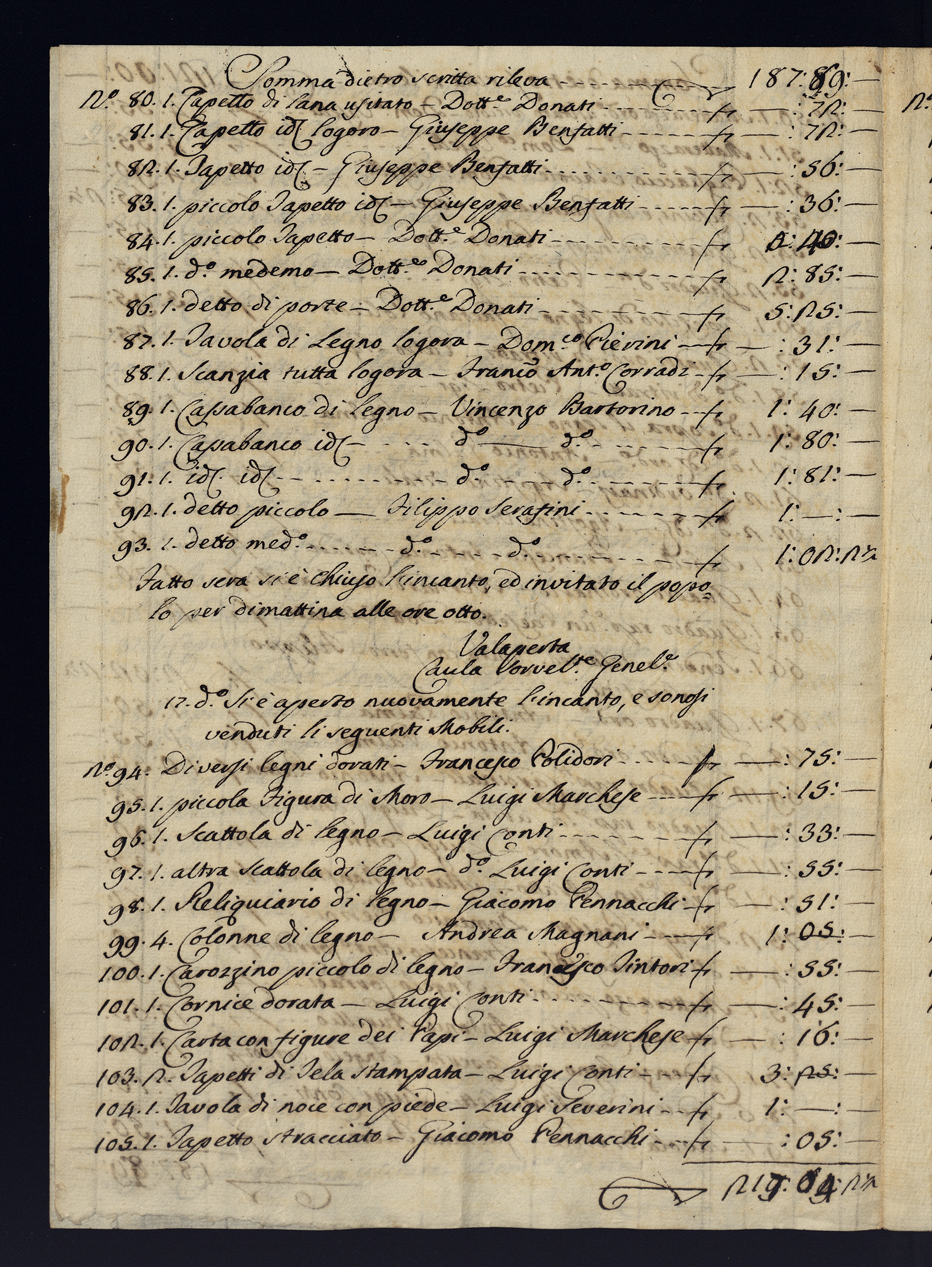 Somma dietro scritta rileva 187: 89: —
N.º 80. 1. Tapetto di lana usitato — Dott.e Donati — : 72: —
81. 1. Tapetto id. logoro — Giuseppe Benfatti — : 72: —
82. 1. Tapetto id. — Giuseppe Benfatti — : 56: —
83. 1. piccolo Tapetto id. — Giuseppe Benfatti — : 36: —
84. 1. piccolo Tapetto — Dott.e Donati 2: 40: —
85. 1. d.º medemo — Dott.e Donati 2: 85: —
86. 1. detto di porte — Dott.e Donati 5: 25: —
87. 1. Tavola di Legno logora — Dom.co Pierini — : 31: —
88. 1. Scanzia tutta logora — Franc.º Ant.º Corradi — : 15: —
89. 1. Cassabanco di legno — Vincenzo Bartorino 1: 40: —
90. 1. Cassabanco id. — d.º — d.º 1: 80: —
91. 1. id. id. d.º d.º 1: 81: —
92. 1. detto piccolo — Filippo Serafini 1: — : —
93. 1. detto med.º d.º d.º 1: 02: 2½
Fatto sera si è chiuso l'incanto, ed invitato il popo=
lo per dimattina alle ore otto.
Valaperta
17. d.º Si è aperto nuovamente l'incanto, e sonosi
venduti li seguenti Mobili.
N.º 94. Diversi legni dorati — Francesco Polidori — : 75: —
95. 1. piccola Figura di Moro — Luigi Marchese — : 15: —
96. 1. Scattola di legno — Luigi Conti — : 33: —
97. 1. altra scattola di legno — d.º Luigi Conti — : 55: —
98. 1. Reliquiario di legno — Giacomo Pennacchi — : 51: —
99. 4. Colonne di legno — Andrea Magnani 1: 05: —
100. 1. Carozzino piccolo di legno — Francesco Tintori — : 55: —
101. 1. Cornice dorata — Luigi Conti — : 45: —
102. 1. Carta con figure dei Papi — Luigi Marchese — : 16: —
103. 2. Tapetti di Tela stampata — Luigi Conti — 3: 25: —
104. 1. Tavola di noce con piede — Luigi Severini 1: — : —
105. 1. Tapetto stracciato — Giacomo Pennacchi — : 05: —
2½